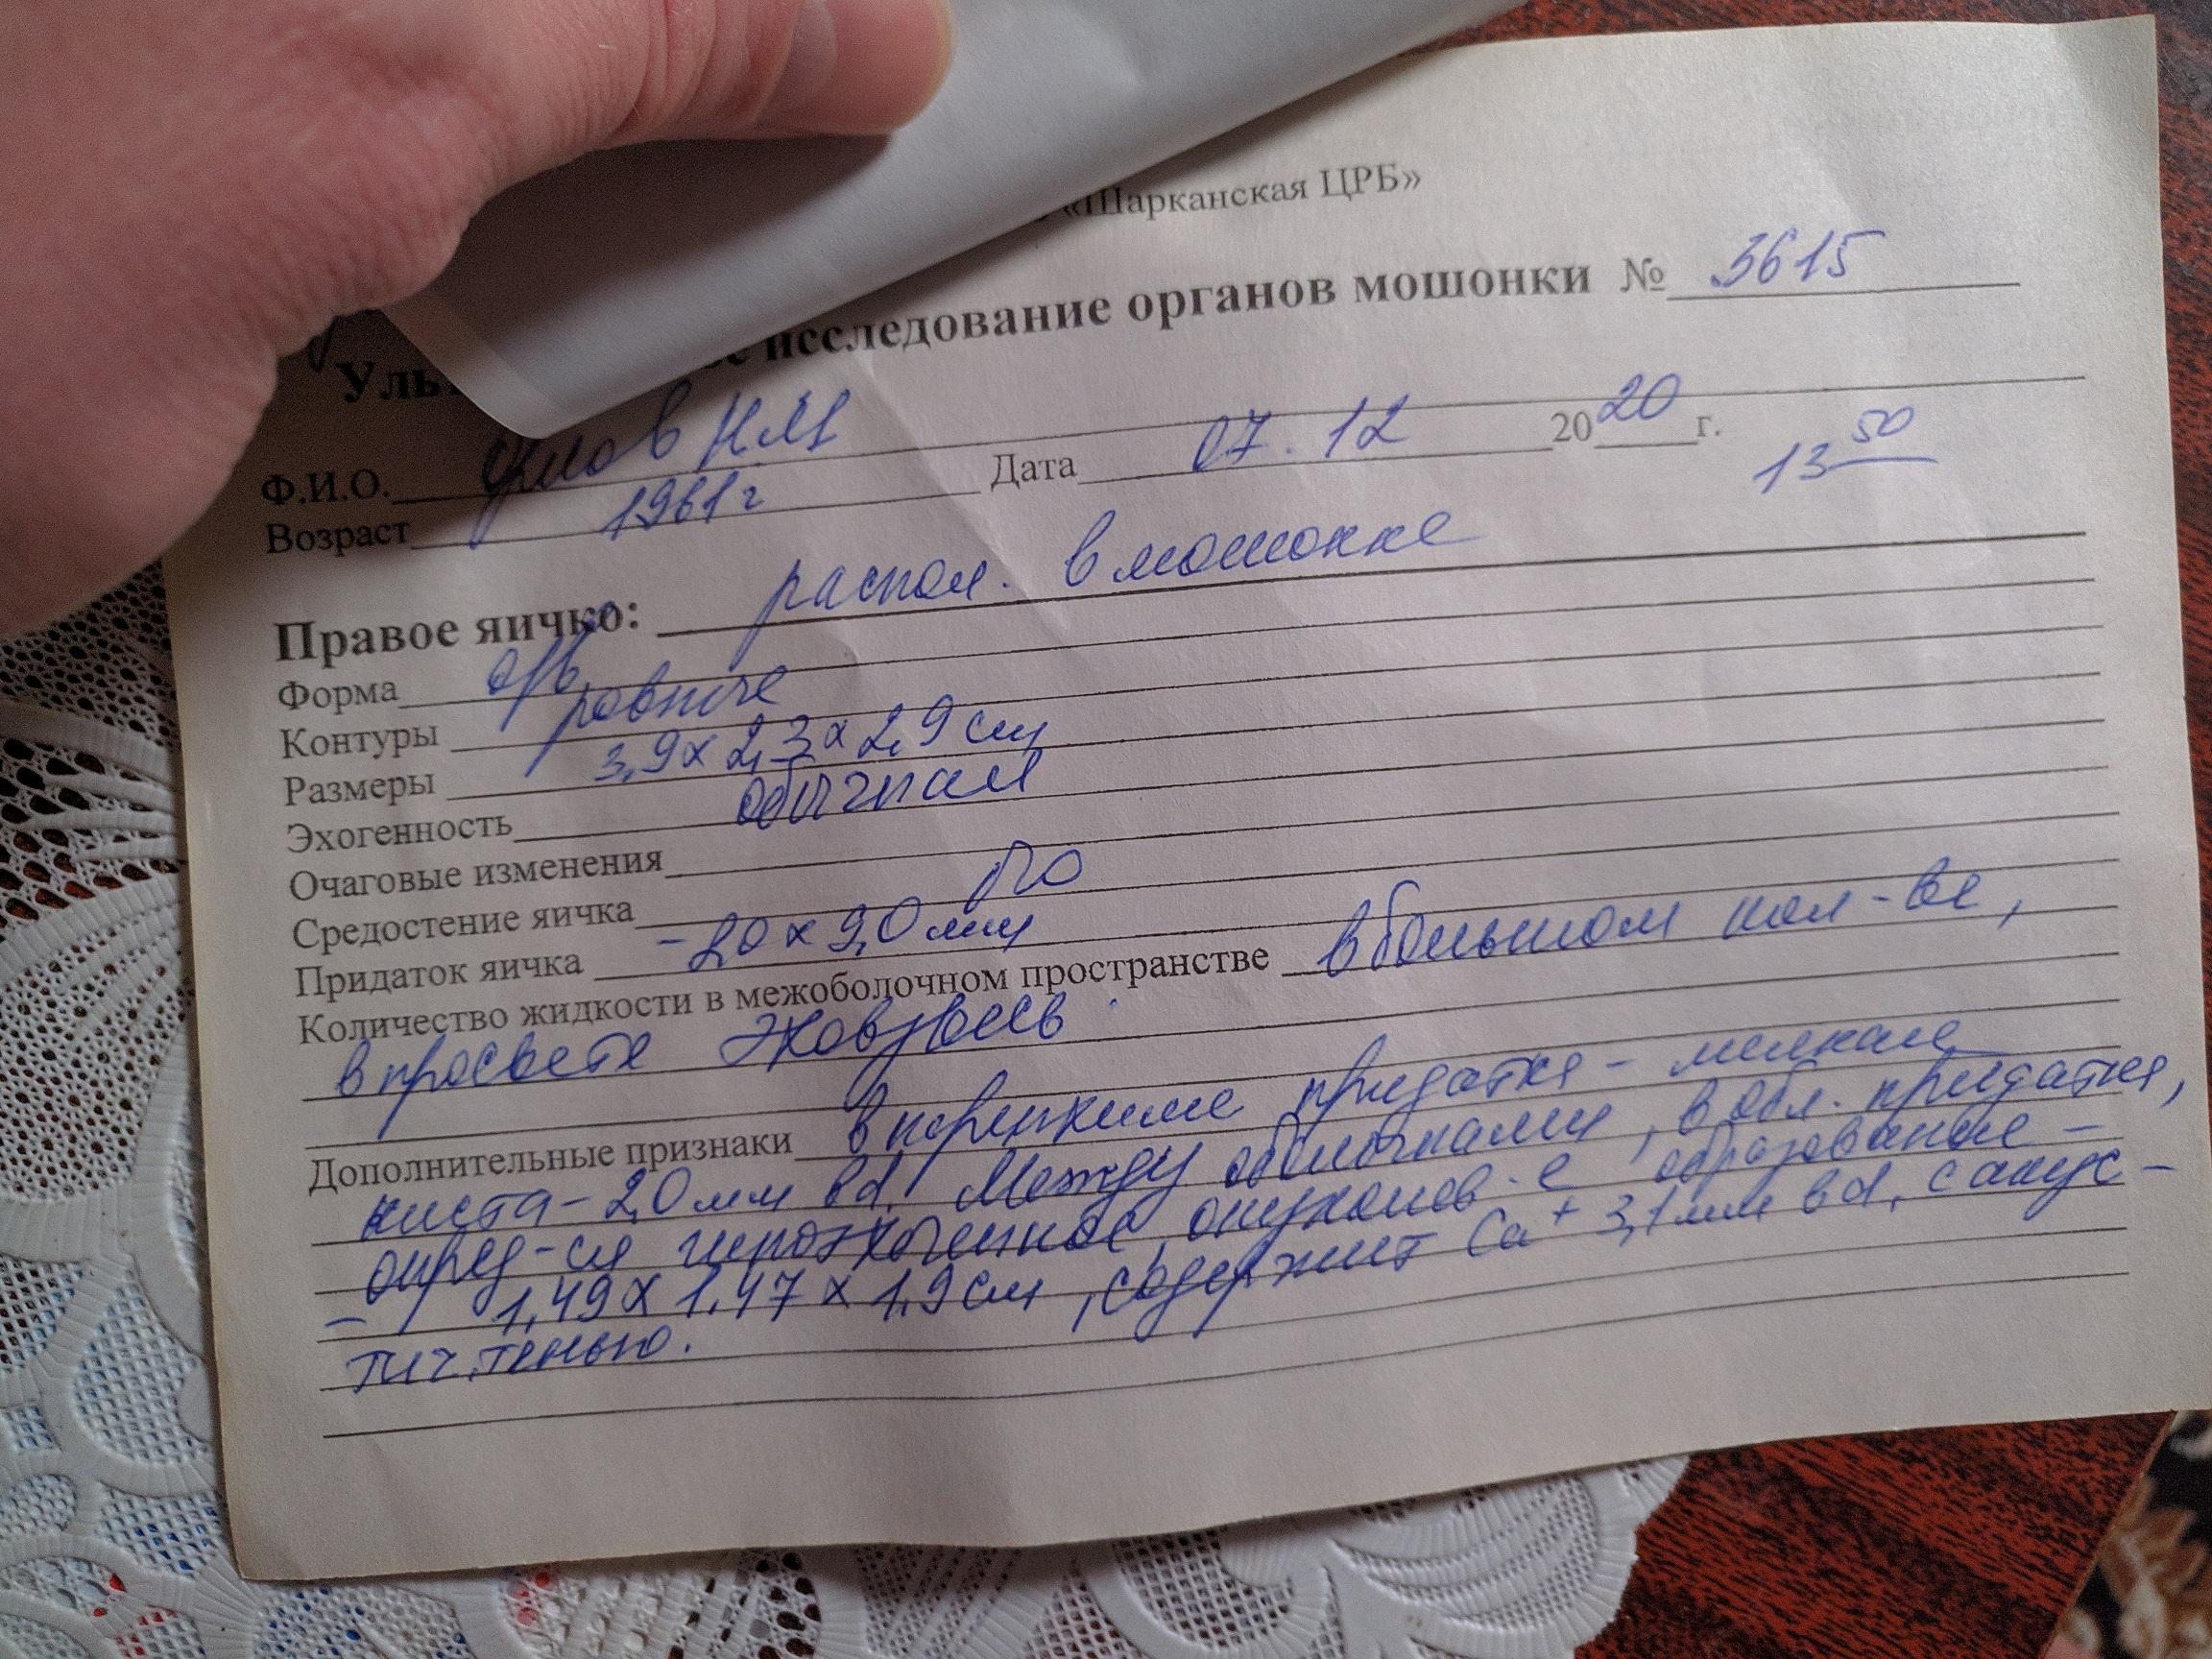 «Шарканская ЦРБ»
исследование органов мошонки № 3615
Ф.И.О. НМ Дата 07.12 2020 г.
Возраст 1961 г 13 50
Правое яичко: распол. в мошонке
Форма
Контуры ровные
Размеры 3,9 х 2,3 х 2,9 см
Эхогенность обычная
Очаговые изменения
Средостение яичка
Придаток яичка - 20 х 9,0 мм
Количество жидкости в межоболочном пространстве в большом кол-ве,
в просвете эховзвесь
Дополнительные признаки в придатка - мелкая
киста - 2,0 мм в d. Между оболочками, в обл. придатка,
опред-ся гипоэхогенное, опухолев-е образование -
- 1,49 х 1,47 х 1,9 см, содержит Ca+ 3,1 мм в d, с акус-
тич. тенью.